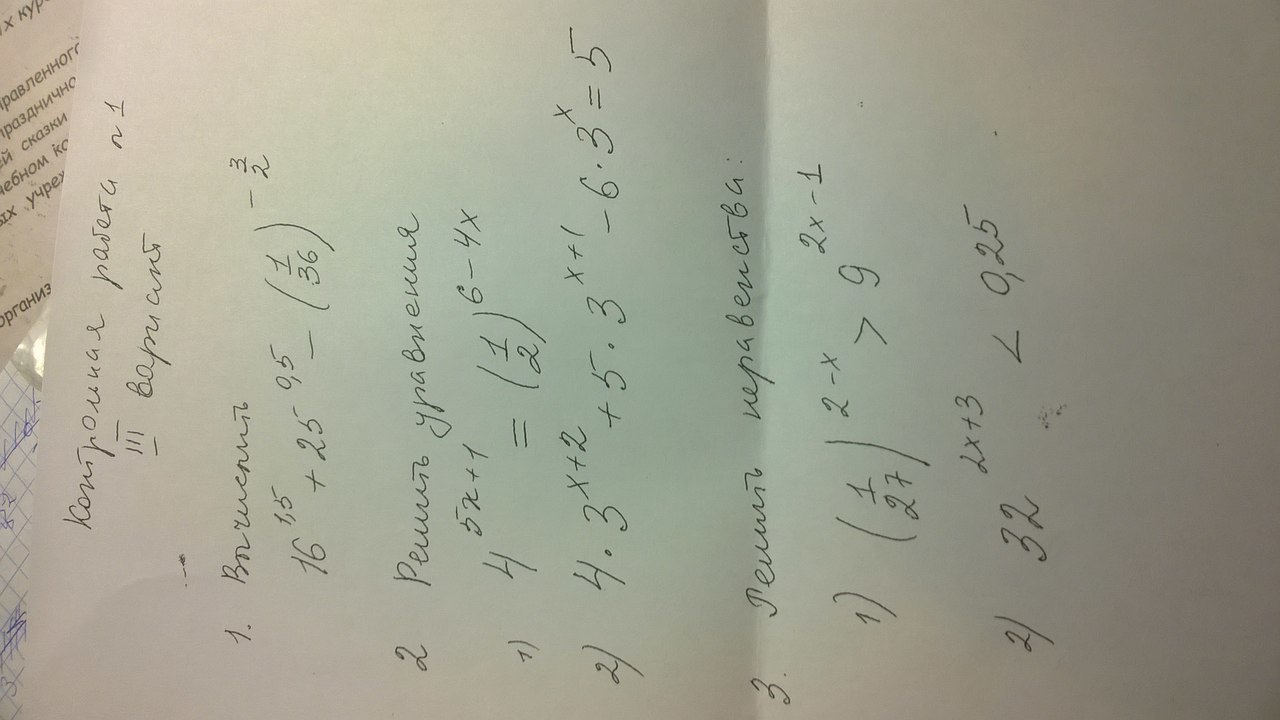 Контрольная работа №1
III вариант
1. Вычислить
16^1,5 + 25^0,5 - (1/36)^-3/2
2 Решить уравнения
1) 4^5x+1 = (1/2)^6-4x
2) 4·3^x+2 + 5·3^x+1 - 6·3^x = 5
3. Решить неравенства:
1) (1/27)^2-x > 9^2x-1
2) 32^2x+3 < 0,25
х кур
правленного
празднично
ей сказки
чебном ко
ых учреж
организ